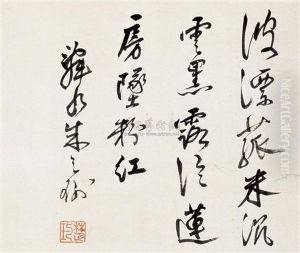 波漂菰米沉
雲黑露冷蓮
房墜粉紅
水朱之
NiceArtGallery.com